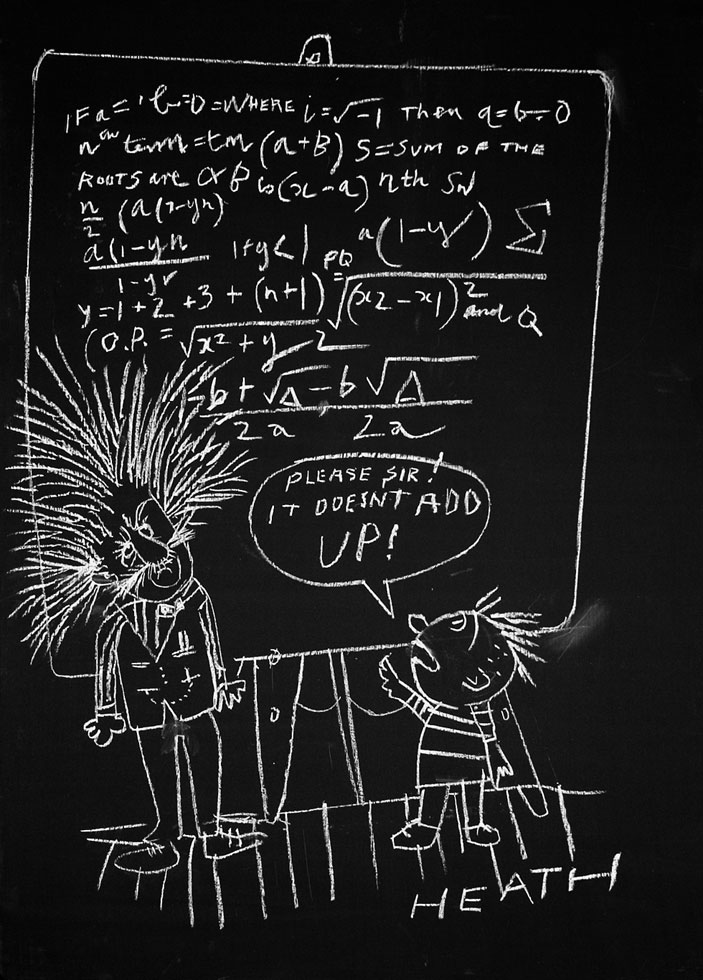 IF a = ' b=0 = WHERE i=√-1 Then a=b=0
n term = tm (a+B) S=SUM OF THE
ROOTS are α β is (x-a) nth Sn
n/2 (a(1-yn)
a(1-yn 1+y<1 a(1-y) Σ
1-yr
PQ
y=1+2+3+(n+1) = √(x2-x1)² and Q
(O.P. = √x²+y 2
-b+√Δ -b√Δ
2a 2a
PLEASE SIR!
IT DOESNT ADD
UP!
HEATH